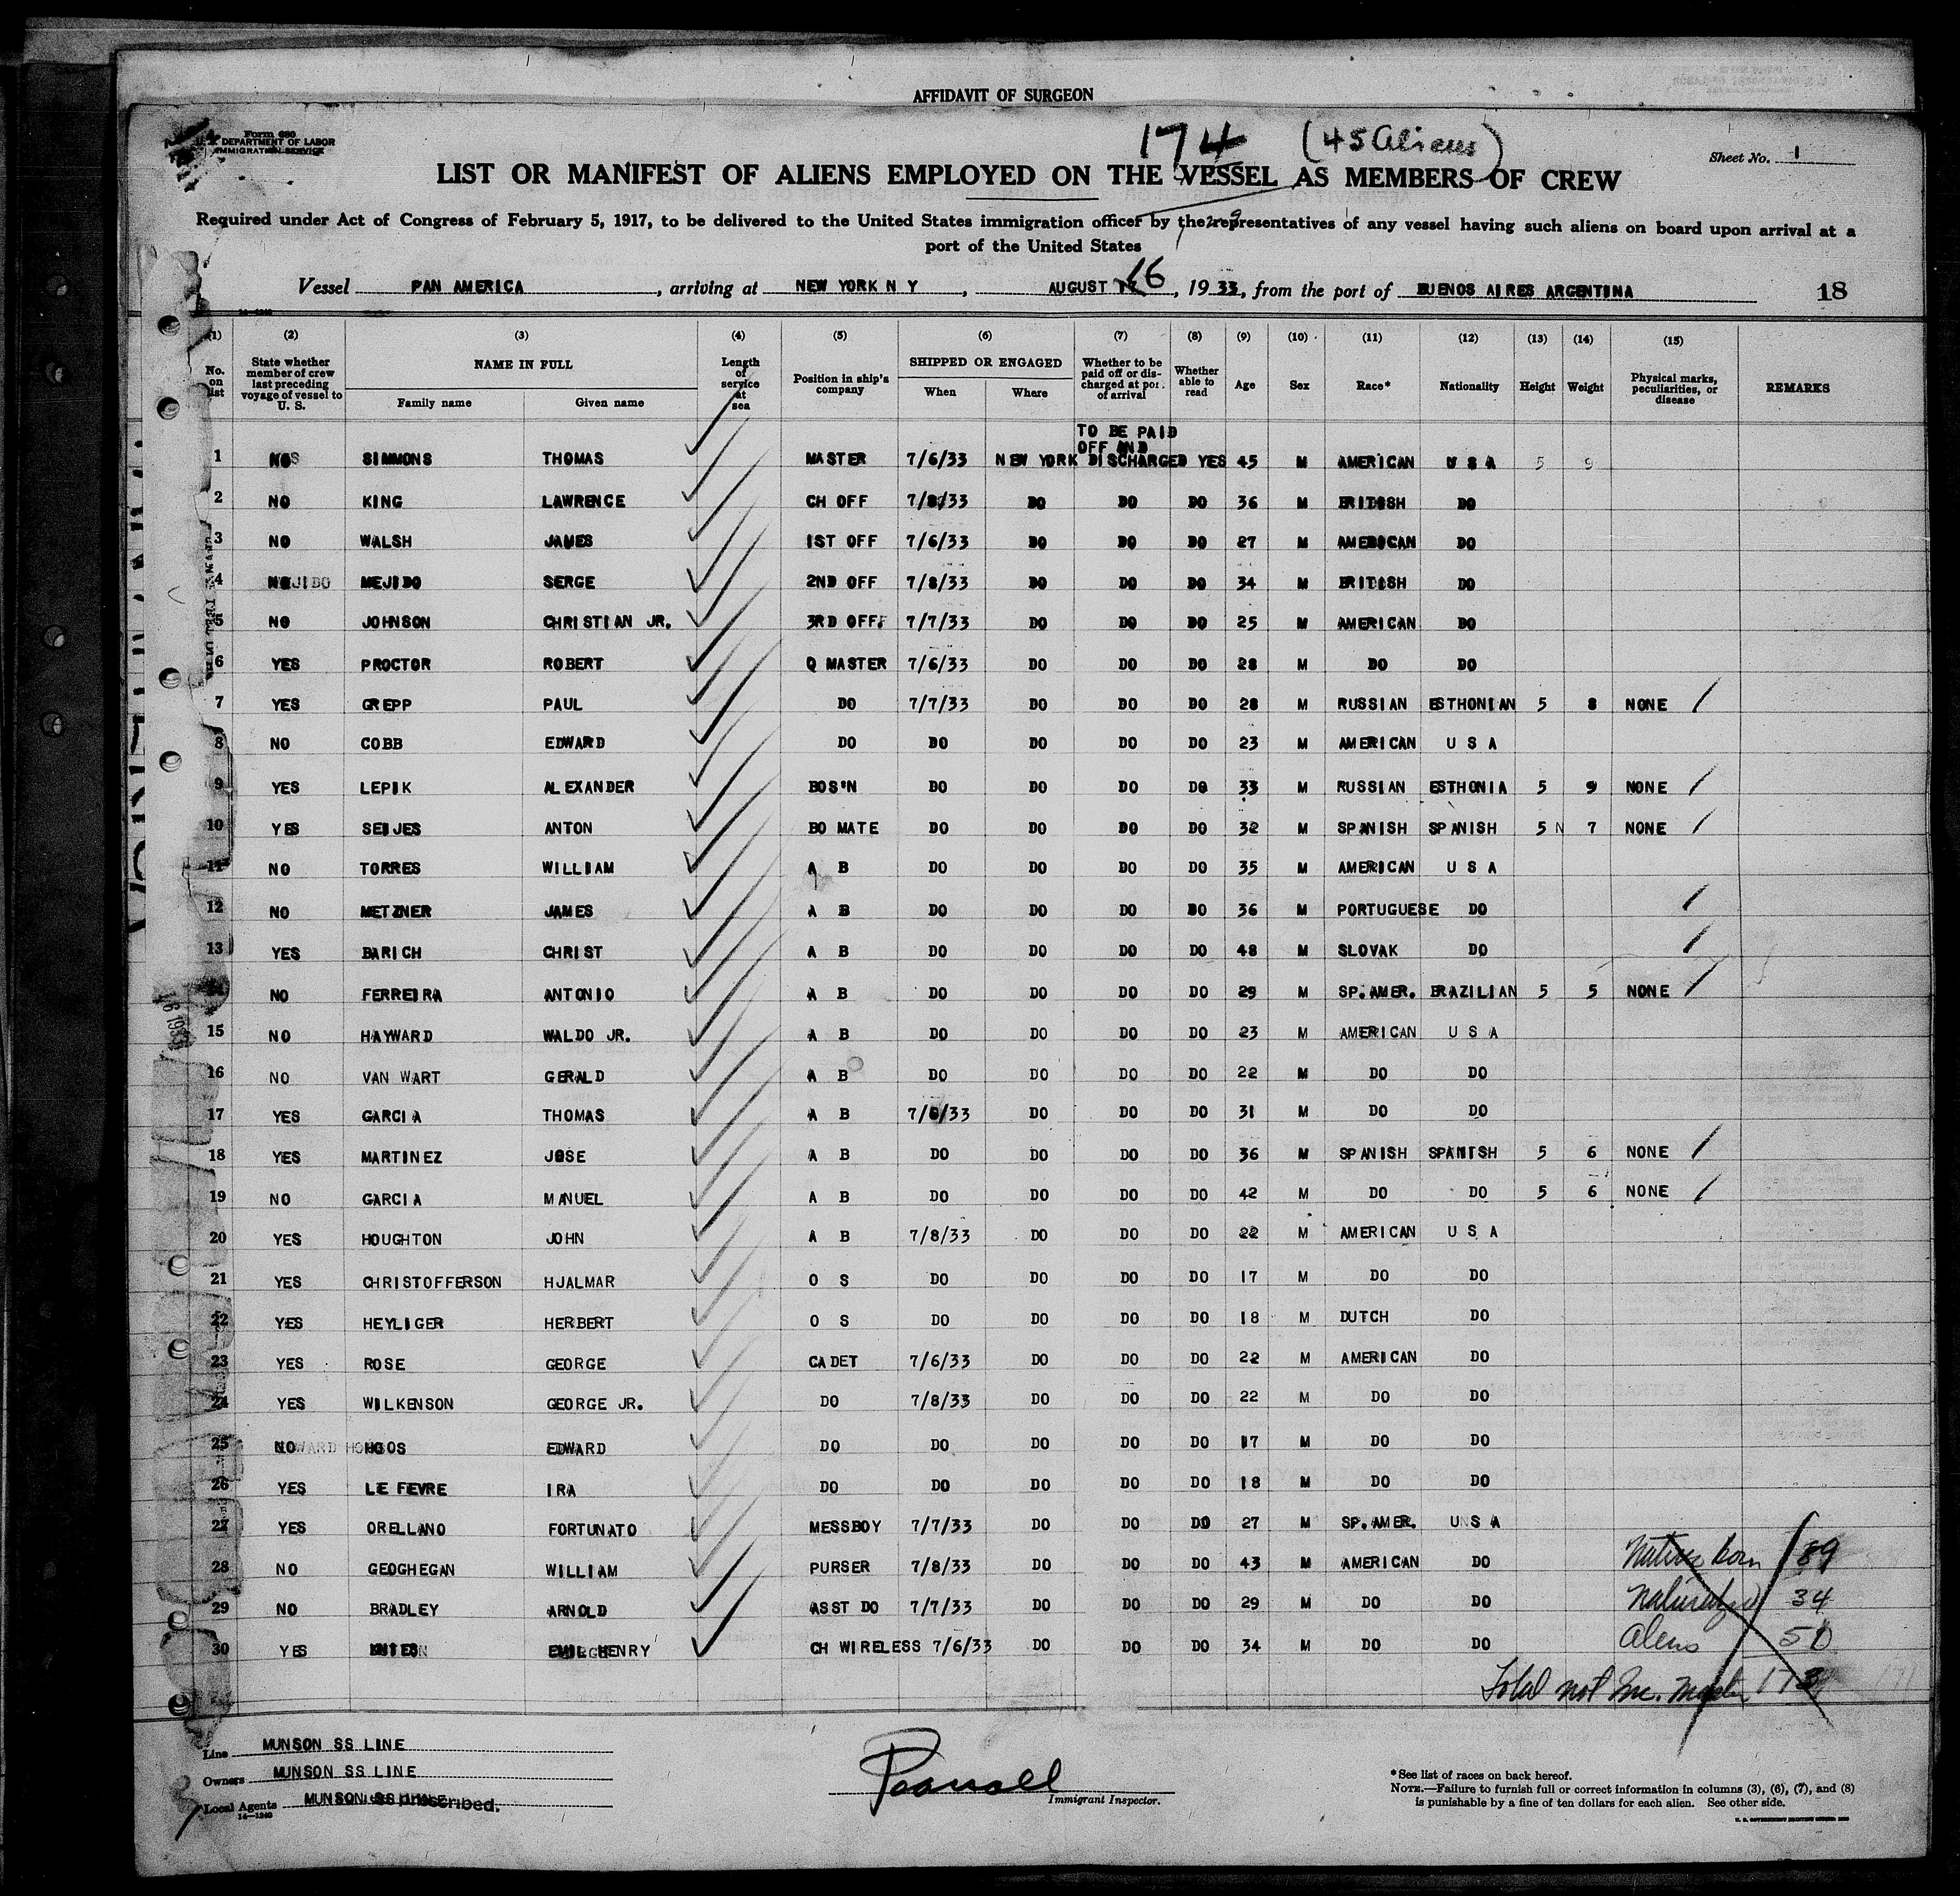 AFFIDAVIT OF SURGEON
Form 680
U. S. DEPARTMENT OF LABOR
IMMIGRATION SERVICE
174 (45 Aliens)
Sheet No. 1
LIST OR MANIFEST OF ALIENS EMPLOYED ON THE VESSEL AS MEMBERS OF CREW
Required under Act of Congress of February 5, 1917, to be delivered to the United States immigration officer by the representatives of any vessel having such aliens on board upon arrival at a
port of the United States
Vessel PAN AMERICA, arriving at NEW YORK N Y, AUGUST 16, 1933, from the port of BUENOS AIRES ARGENTINA 18
(1) (2) (3) (4) (5) (6) (7) (8) (9) (10) (11) (12) (13) (14) (15)
No. on list State whether member of crew last preceding voyage of vessel to U. S. NAME IN FULL Family name Given name Length of service at sea Position in ship's company SHIPPED OR ENGAGED When Where Whether to be paid off or discharged at port of arrival Whether able to read Age Sex Race* Nationality Height Weight Physical marks, peculiarities, or disease REMARKS
TO BE PAID
OFF AND
1 NO SIMMONS THOMAS MASTER 7/6/33 NEW YORK DISCHARGED YES 45 M AMERICAN U S A 5 9
2 NO KING LAWRENCE CH OFF 7/8/33 DO DO DO 36 M BRITISH DO
3 NO WALSH JAMES 1ST OFF 7/6/33 DO DO DO 27 M AMERICAN DO
4 NO MEJIDO SERGE 2ND OFF 7/8/33 DO DO DO 34 M BRITISH DO
5 NO JOHNSON CHRISTIAN JR. 3RD OFF. 7/7/33 DO DO DO 25 M AMERICAN DO
6 YES PROCTOR ROBERT Q MASTER 7/6/33 DO DO DO 28 M DO DO
7 YES GREPP PAUL DO 7/7/33 DO DO DO 28 M RUSSIAN ESTHONIAN 5 8 NONE /
8 NO COBB EDWARD DO DO DO DO DO 23 M AMERICAN U S A
9 YES LEPIK ALEXANDER BOS'N DO DO DO DO 33 M RUSSIAN ESTHONIA 5 9 NONE /
10 YES SEIJES ANTON BO MATE DO DO DO DO 32 M SPANISH SPANISH 5 7 NONE /
11 NO TORRES WILLIAM A B DO DO DO DO 35 M AMERICAN U S A
12 NO METZNER JAMES A B DO DO DO DO 36 M PORTUGUESE DO /
13 YES BARICH CHRIST A B DO DO DO DO 48 M SLOVAK DO /
14 NO FERREIRA ANTONIO A B DO DO DO DO 29 M SP.AMER. BRAZILIAN 5 5 NONE /
15 NO HAYWARD WALDO JR. A B DO DO DO DO 23 M AMERICAN U S A
16 NO VAN WART GERALD A B DO DO DO DO 22 M DO DO
17 YES GARCIA THOMAS A B 7/6/33 DO DO DO 31 M DO DO
18 YES MARTINEZ JOSE A B DO DO DO DO 36 M SPANISH SPANISH 5 6 NONE /
19 NO GARCIA MANUEL A B DO DO DO DO 42 M DO DO 5 6 NONE /
20 YES HOUGHTON JOHN A B 7/8/33 DO DO DO 22 M AMERICAN U S A
21 YES CHRISTOFFERSON HJALMAR O S DO DO DO DO 17 M DO DO
22 YES HEYLIGER HERBERT O S DO DO DO DO 18 M DUTCH DO
23 YES ROSE GEORGE CADET 7/6/33 DO DO DO 22 M AMERICAN DO
24 YES WILKENSON GEORGE JR. DO 7/8/33 DO DO DO 22 M DO DO
25 NO EDWARD DO DO DO DO DO 17 M DO DO
26 YES LE FEVRE IRA DO DO DO DO DO 18 M DO DO
27 YES ORELLANO FORTUNATO MESSBOY 7/7/33 DO DO DO 27 M SP.AMER. U S A
28 NO GEOGHEGAN WILLIAM PURSER 7/8/33 DO DO DO 43 M AMERICAN DO
29 NO BRADLEY ARNOLD ASST DO 7/7/33 DO DO DO 29 M DO DO
30 YES EMIL HENRY CH WIRELESS 7/6/33 DO DO DO 34 M DO DO
Native born 89
Naturalized 34
Aliens
Total not Inc. Master 173
Line MUNSON SS LINE
Owners MUNSON SS LINE
Local Agents MUNSON SS LINE prescribed.
14—1240
Immigrant Inspector.
*See list of races on back hereof.
NOTE.—Failure to furnish full or correct information in columns (3), (6), (7), and (8)
is punishable by a fine of ten dollars for each alien. See other side.